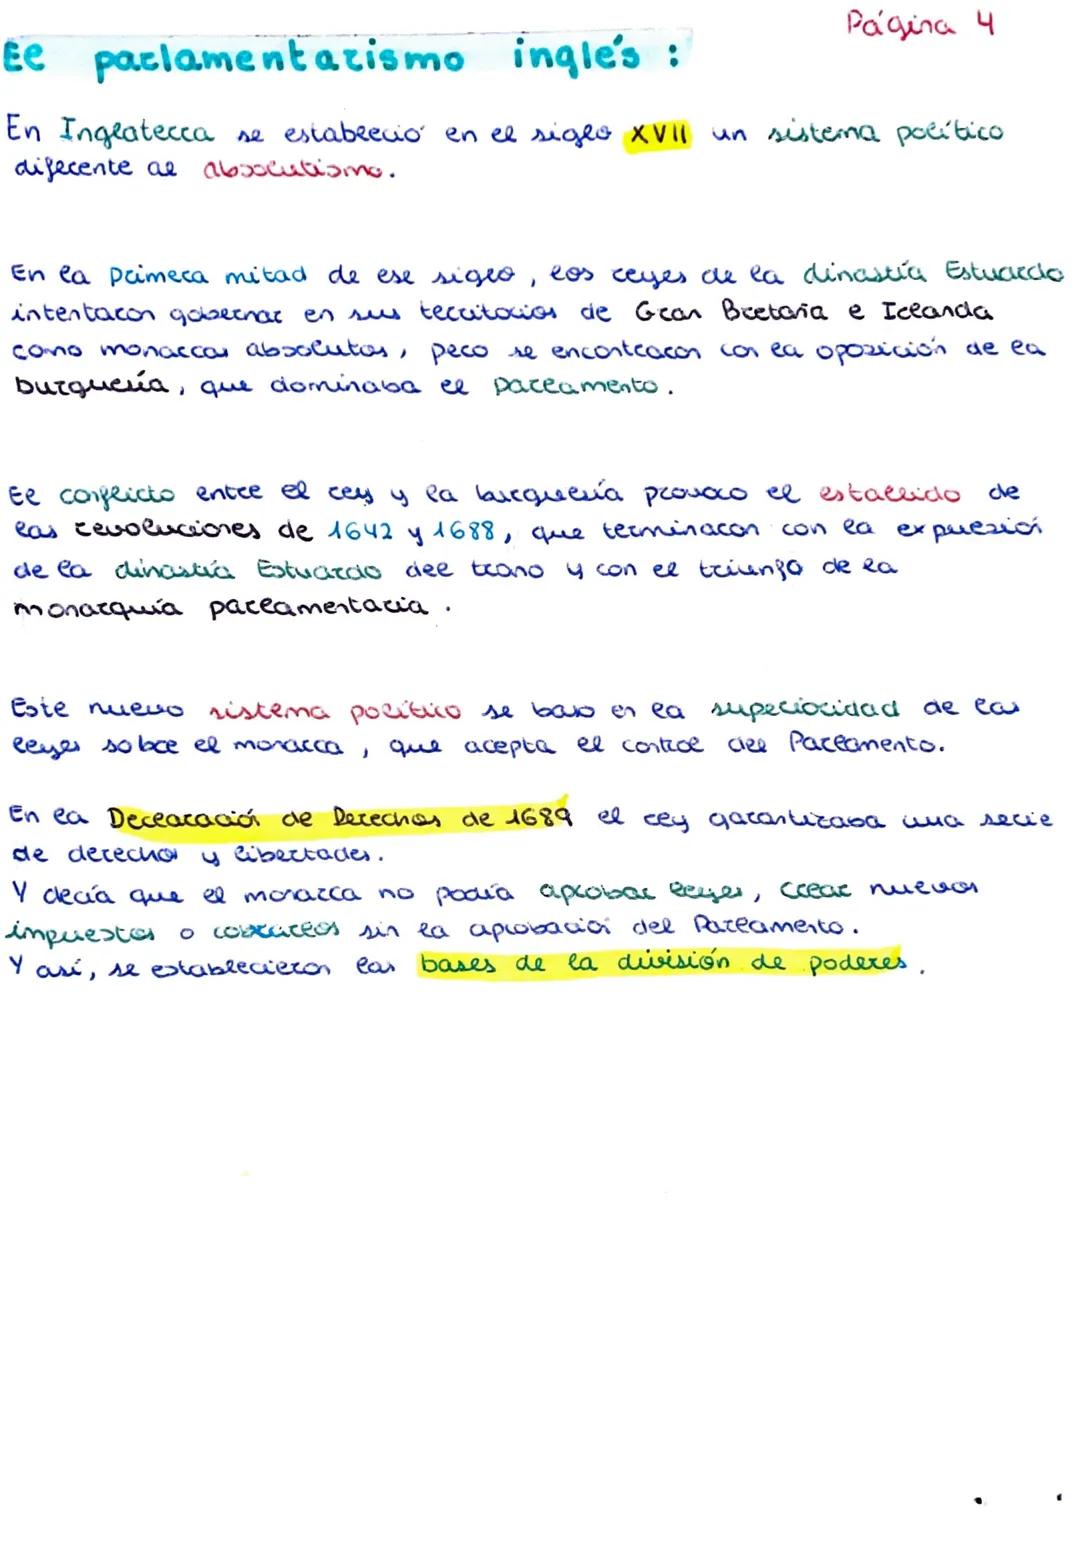 Página 4
El parlamentarismo inglés :
En Inglaterra se estableció en el siglo XVII un sistema político
diferente al absolutismo.
En la primera mitad de ese siglo, los reyes de la dinastía Estuardo
intentaron gobernar en sus territorios de Gran Bretaña e Irlanda
como monarcas absolutos, pero se encontraron con la oposición de la
burguesía, que dominaba el Parlamento.
El conflicto entre el rey y la burguesía provoco el estallido de
las revoluciones de 1642 y 1688, que terminaron con la expulsión
de la dinastía Estuardo del trono y con el triunfo de la
monarquía parlamentaria.
Este nuevo sistema político se baso en la superioridad de las
leyes sobre el monarca, que acepta el control del Parlamento.
En la Declaración de Derechos de 1689 el rey garantizaba una serie
de derechos y libertades.
Y decía que el monarca no podía aprobar leyes, crear nuevos
impuestos o cobrarlos sin la aprobación del Parlamento.
Y así, se establecieron las bases de la división de poderes.